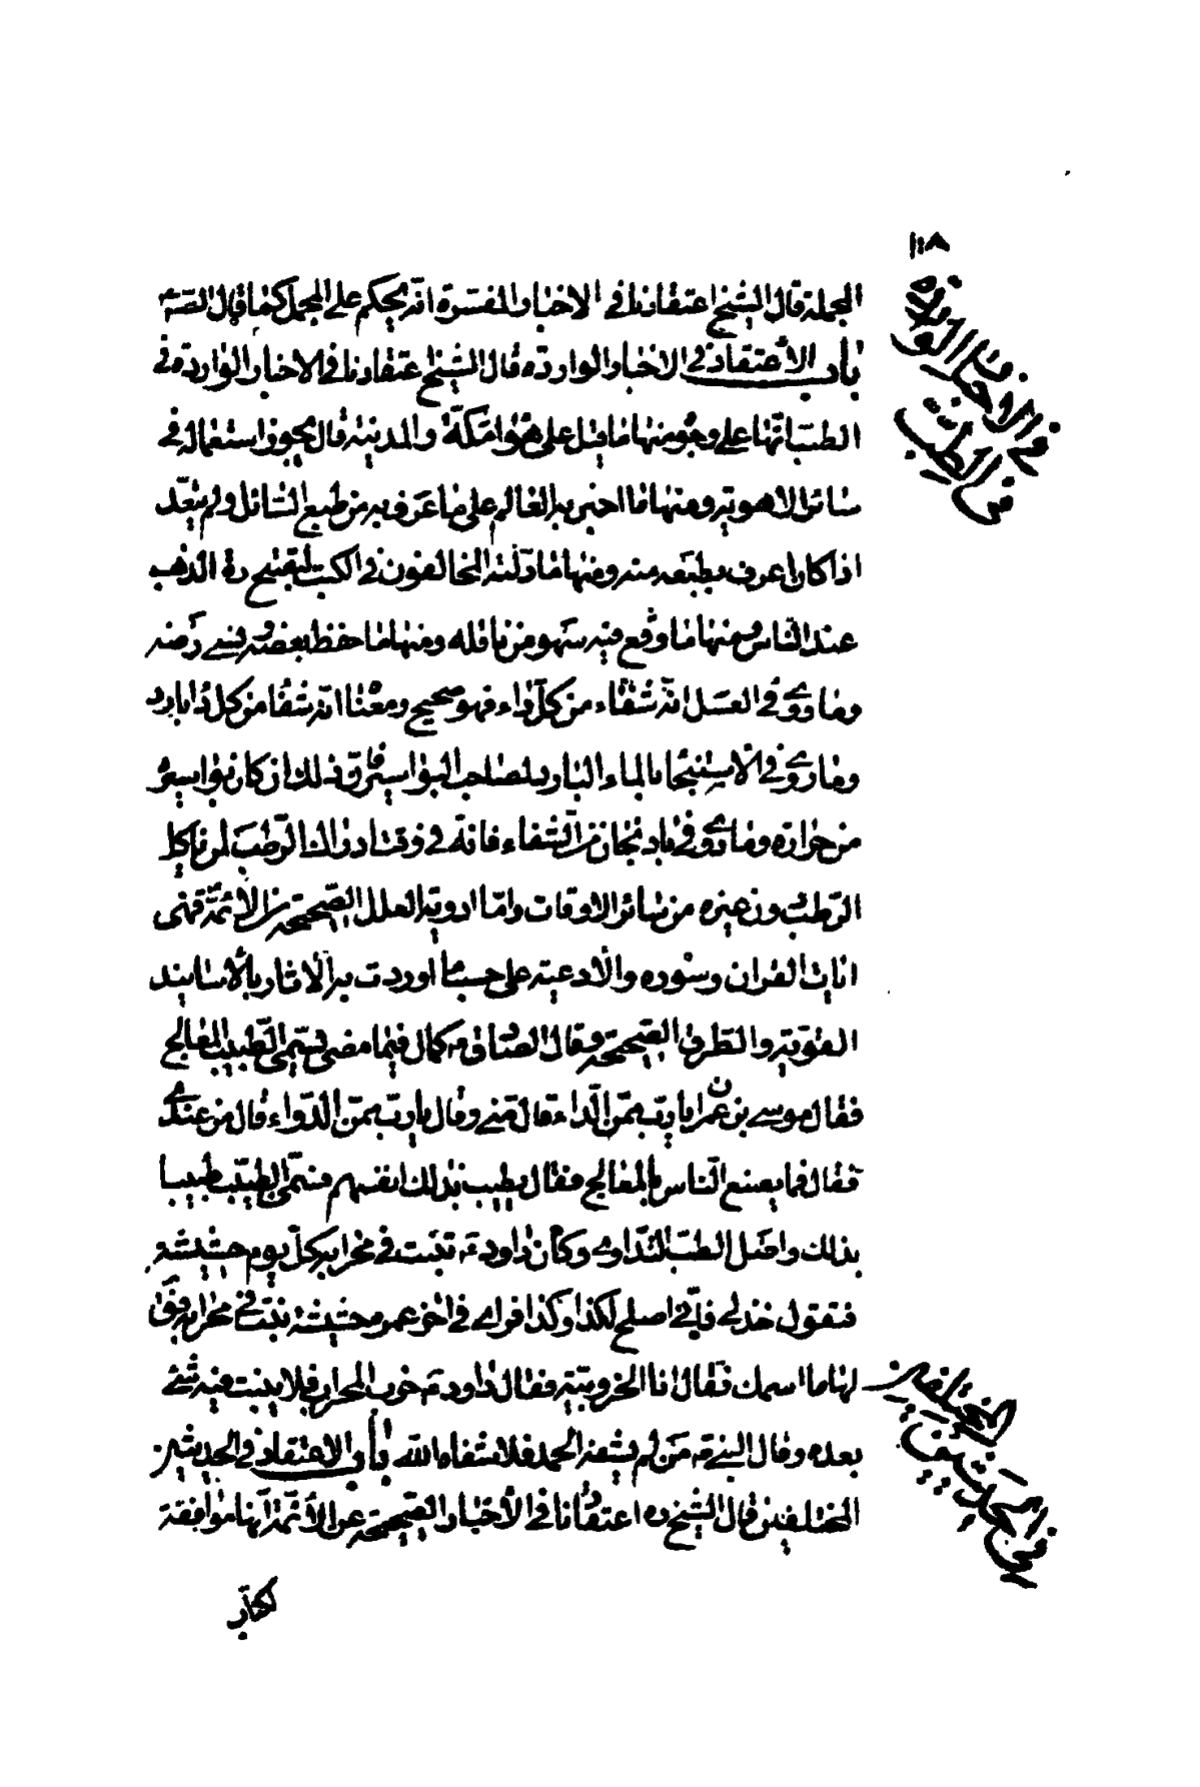 ١١٨
المجملة قال الشيخ اعتقادنا في الاخبار المفسرة انه يحكم على المجمل كما قال الصـ
باب الاعتقاد في الاخبار الواردة قال الشيخ اعتقادنا في الاخبار الواردة في
الطب انها على وجوه منها ما قيل على هواء مكة والمدينة قال يجوز استعماله في
سائر الاهوية ومنها ما اخبر به العالم على ما عرف به من طبع السائل ولم يتعد
اذا كان اعرف بطبعه منه ومنها ما دلسه المخالفون في الكتب لتقبيح المذهب
عند الناس ومنها ما وقع فيه سهو من ناقله ومنها ما حفظ بعضه ونسى بعضه
وما روى في العسل انه شفاء من كل داء فهو صحيح ومعناه انه شفاء من كل داء بارد
وما روى في الاستنجاء بالماء البارد لصاحب البواسير فان ذلك ان كان بواسيره
من حرارة وما روى في باذنجان من الشفاء فانه في وقت ادراك الرطب لمن ياكل
الرطب دون غيره من سائر الاوقات واما ادوية العلل الصحيحة من الائمة فهى
ايات القران وسوره والادعية على حسب ما اوردت به الاثار بالاسانيد
القوية والطرق الصحيحة وقال الصادق ع كان فيما مضى يسمى الطبيب المعالج
فقال موسى بن عمران يا رب ممن الداء قال منى وقال يا رب ممن الدواء قال من عندى
فقال فما يصنع الناس بالمعالج فقال يطيب بذلك انفسهم فسمى الطبيب طبيبا
بذلك واصل الطب التداوى وكان داود ع تنبت في محرابه كل يوم حشيشة
فتقول خذنى فانى اصلح لكذا وكذا فراى في اخر عمره حشيشة نبتت في محرابه فقال
لها ما اسمك فقال انا الخروبية فقال داود ع خرب المحراب فلا ينبت فيه شئ
بعده وقال النبى ص من لم يشفه الحمد فلا شفاه الله باب الاعتقاد في الحديثين
المختلفين قال الشيخ ره اعتقادنا في الاخبار الصحيحة عن الائمة انها موافقة
لكتاب
في الاخبار الواردة
من الطب
في الحديثين
المختلفين